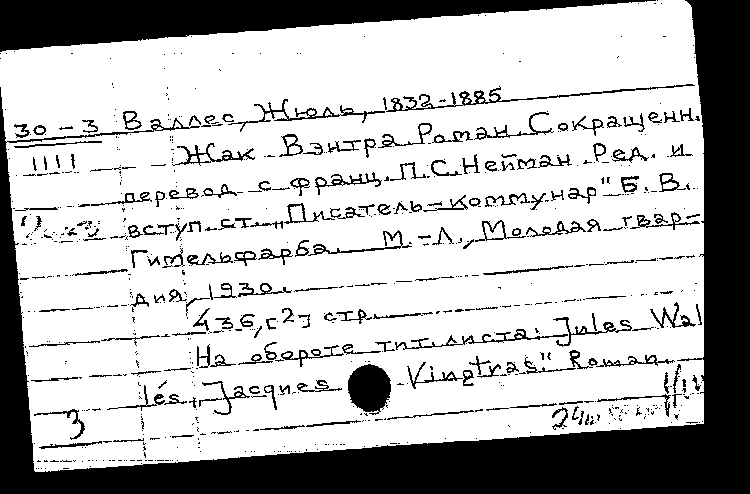 30-3 Валлес, Жюль, 1832-1885
1111 Жак Вэнтра. Роман. Сокращенн.
перевод с франц. П.С.Нейман. Ред. и
вступ. ст. „Писатель-коммунар" Б. В.
Гимельфарба. М.-Л., Молодая гвар-
дия, 1930.
436, [2] стр.
На обороте тит. листа: Jules Wal
lés „Jacques Vingtras." Roman.
3
24